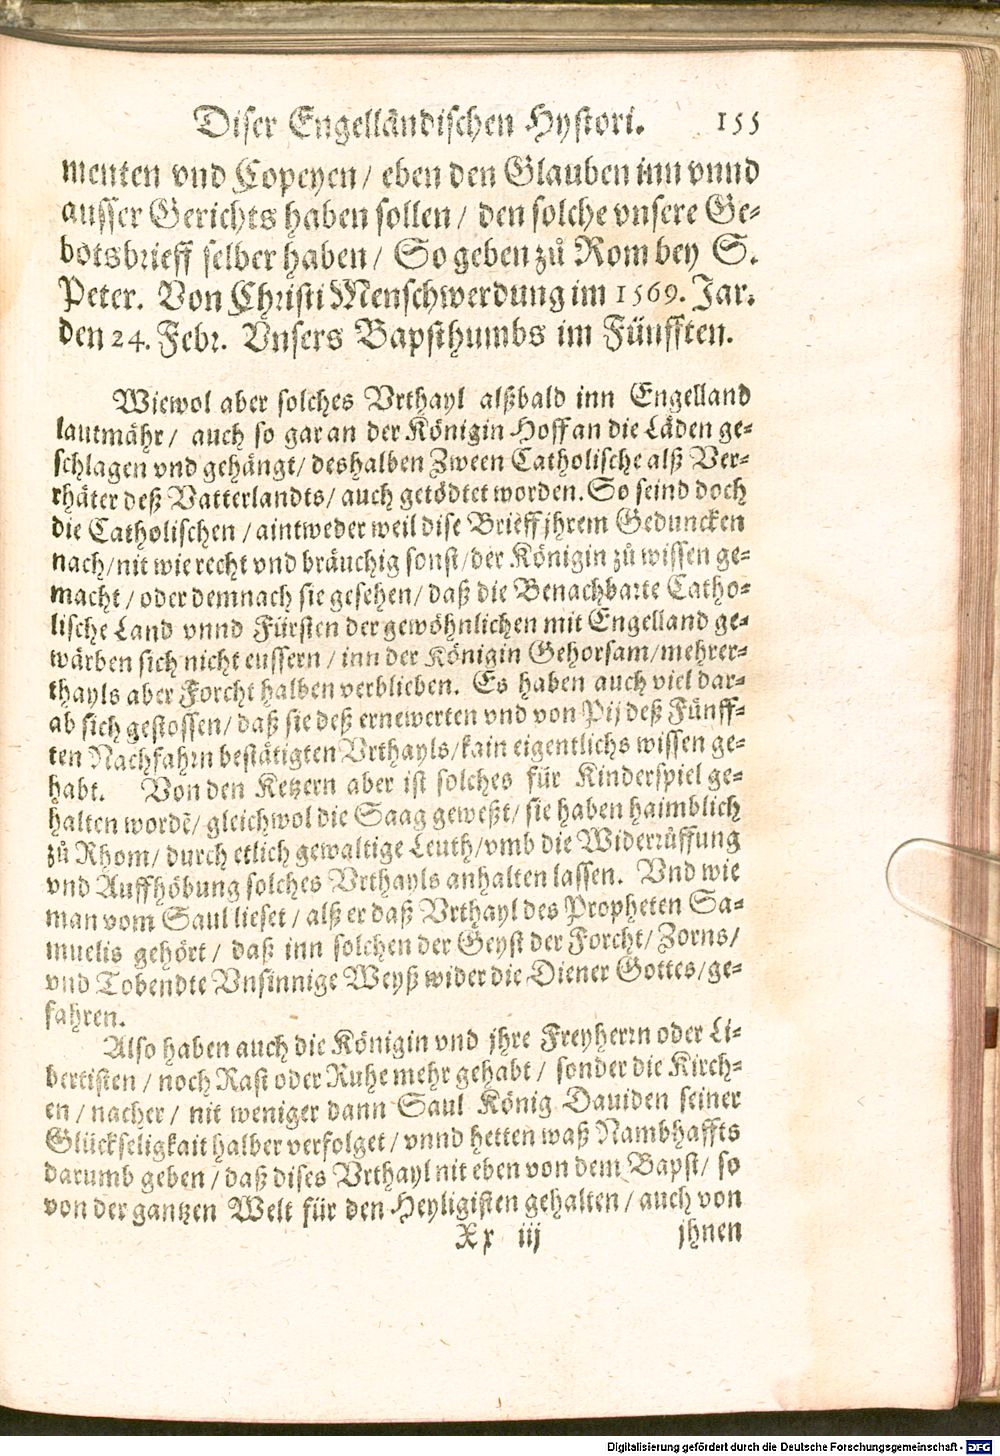 Diser Engelländischen Hystori. 155
menten vnd Copeyen / eben den Glauben inn vnnd
ausser Gerichts haben sollen / den solche vnsere Ge-
botsbrieff selber haben / So geben zů Rom bey S.
Peter. Von Christi Menschwerdung im 1569. Jar.
den 24. Febr. Vnsers Bapsthumbs im Fünfften.
Wiewol aber solches Vrthayl alßbald inn Engelland
lautmähr / auch so gar an der Königin Hoff an die Läden ge-
schlagen vnd gehängt / deshalben Zween Catholische alß Ver-
rhäter deß Vatterlandts / auch getödtet worden. So seind doch
die Catholischen / aintweder weil dise Brieff jhrem Geduncken
nach / nit wie recht vnd bräuchig sonst / der Königin zů wissen ge-
macht / oder demnach sie gesehen / daß die Benachbarte Catho-
lische Land vnnd Fürsten der gewöhnlichen mit Engelland ge-
wärben sich nicht eussern / inn der Königin Gehorsam / mehrer-
thayls aber Forcht halben verblieben. Es haben auch viel dar-
ab sich gestossen / daß sie deß ernewerten vnd von Pij deß Fünff-
ten Nachfahrn bestätigten Vrthayls / kain eigentlichs wissen ge-
habt. Von den Ketzern aber ist solches für Kinderspiel ge-
halten wordẽ / gleichwol die Saag geweßt / sie haben haimblich
zů Rhom / durch etlich gewaltige Leuth / vmb die Widerrüffung
vnd Auffhöbung solches Vrthayls anhalten lassen. Vnd wie
man vom Saul lieset / alß er daß Vrthayl des Propheten Sa-
muelis gehört / daß inn solchen der Geyst der Forcht / Zorns /
vnd Tobendte Vnsinnige Weyß wider die Diener Gottes / ge-
fahren.
Also haben auch die Königin vnd jhre Freyherrn oder Li-
bertisten / noch Rast oder Ruhe mehr gehabt / sonder die Kirch-
en / nacher / nit weniger dann Saul König Dauiden seiner
Glückseligkait halber verfolget / vnnd hetten waß Nambhaffts
darumb geben / daß dises Vrthayl nit eben von dem Bapst / so
von der gantzen Welt für den Heyligisten gehalten / auch von
Xx iij jhnen
Digitalisierung gefördert durch die Deutsche Forschungsgemeinschaft - DFG